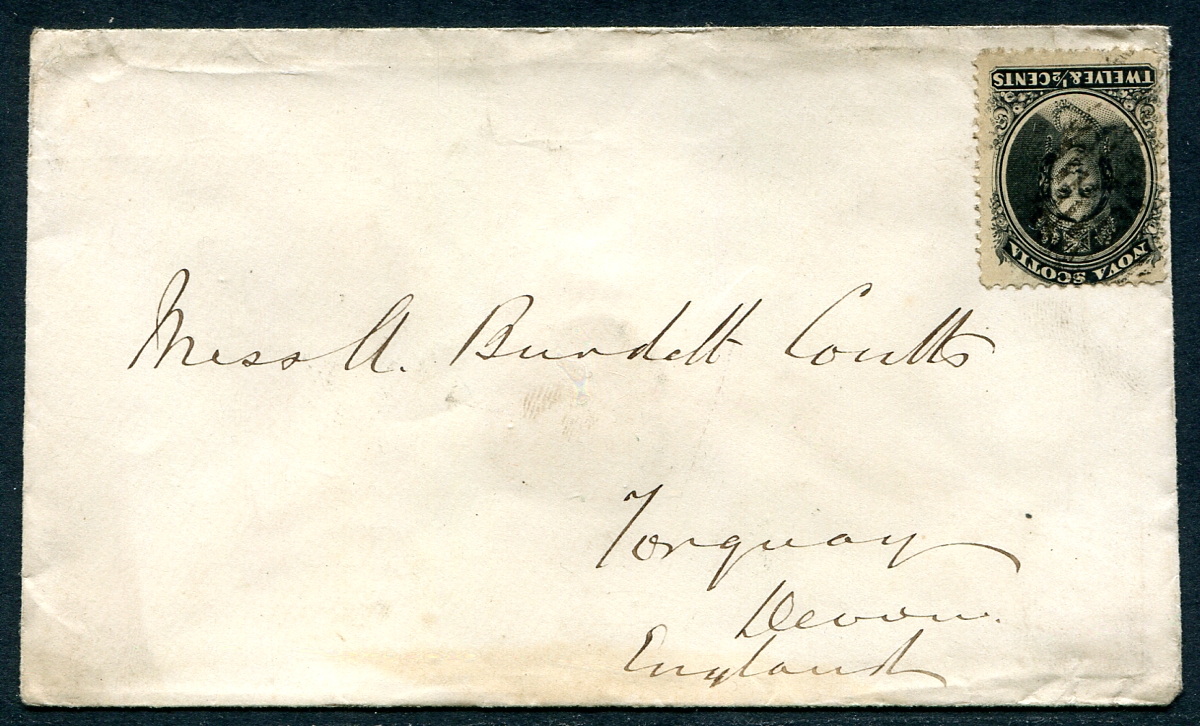 TWELVE & 1/2 CENTS
NOVA SCOTIA
Miss A. Burdett Coutts
Torquay
Devon.
England